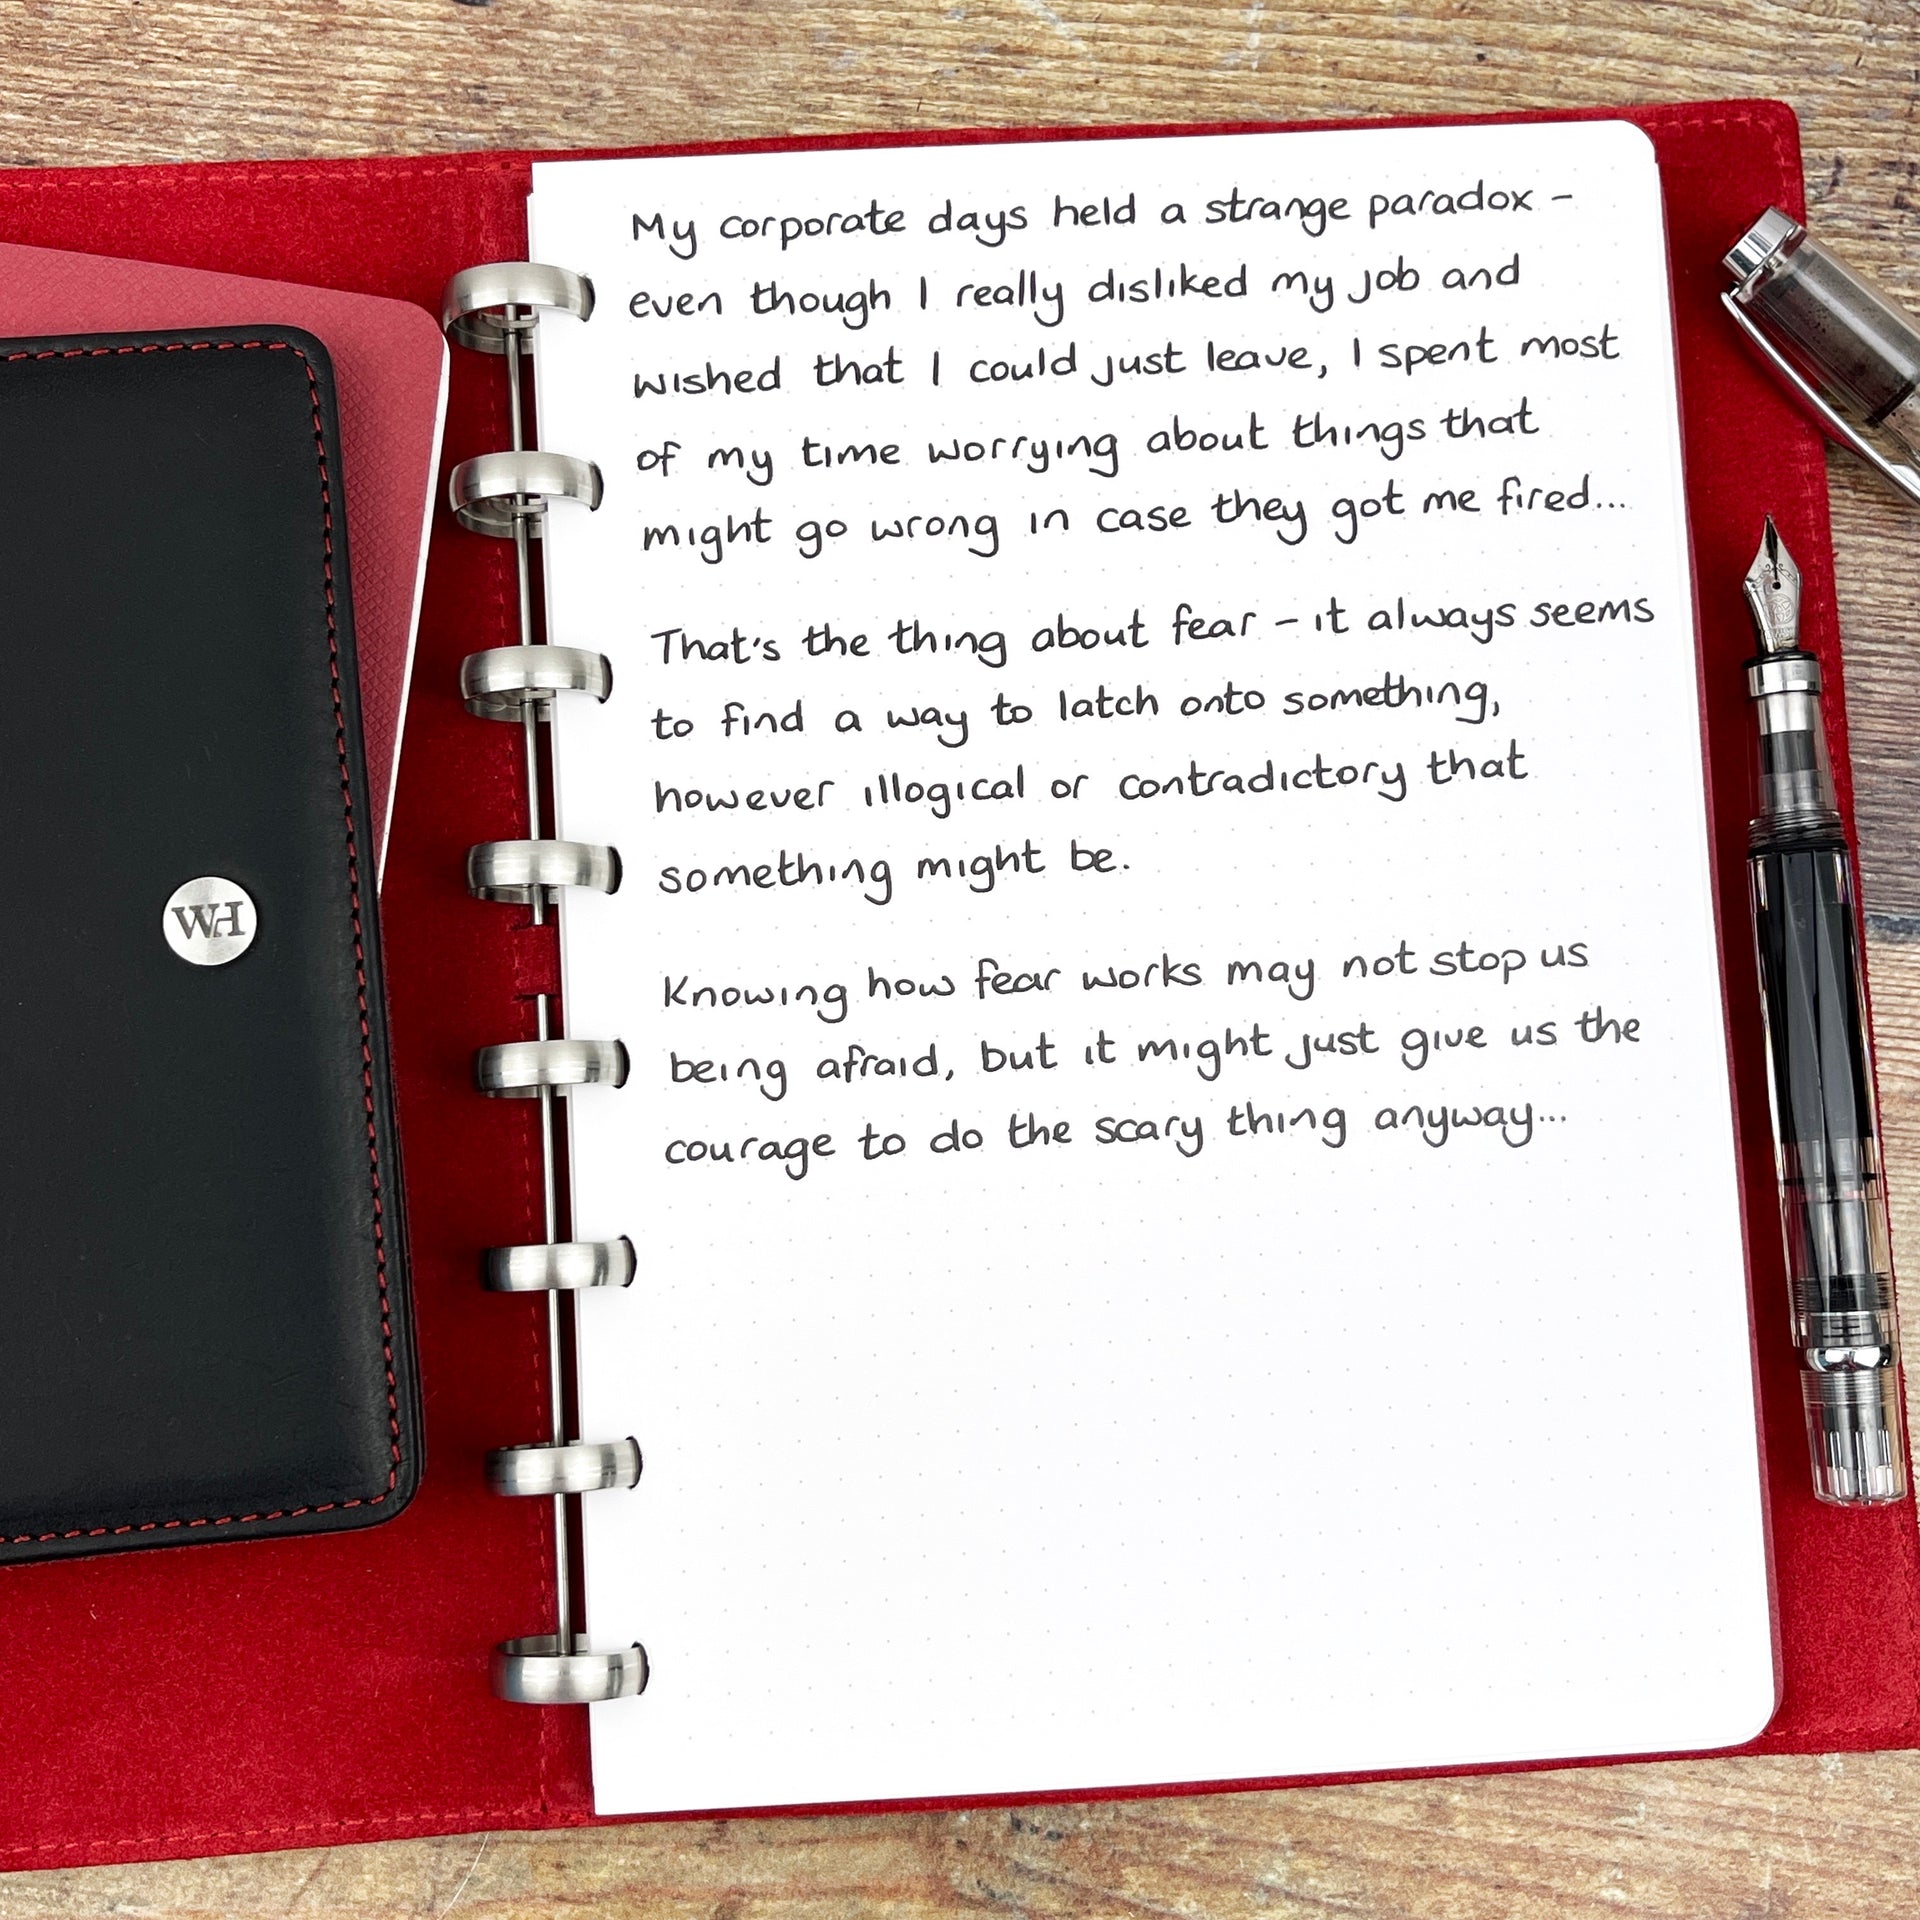 My corporate days held a strange paradox -
even though I really disliked my job and
wished that I could just leave, I spent most
of my time worrying about things that
might go wrong in case they got me fired...
That's the thing about fear - it always seems
to find a way to latch onto something,
however illogical or contradictory that
something might be.
Knowing how fear works may not stop us
being afraid, but it might just give us the
courage to do the scary thing anyway...
WH